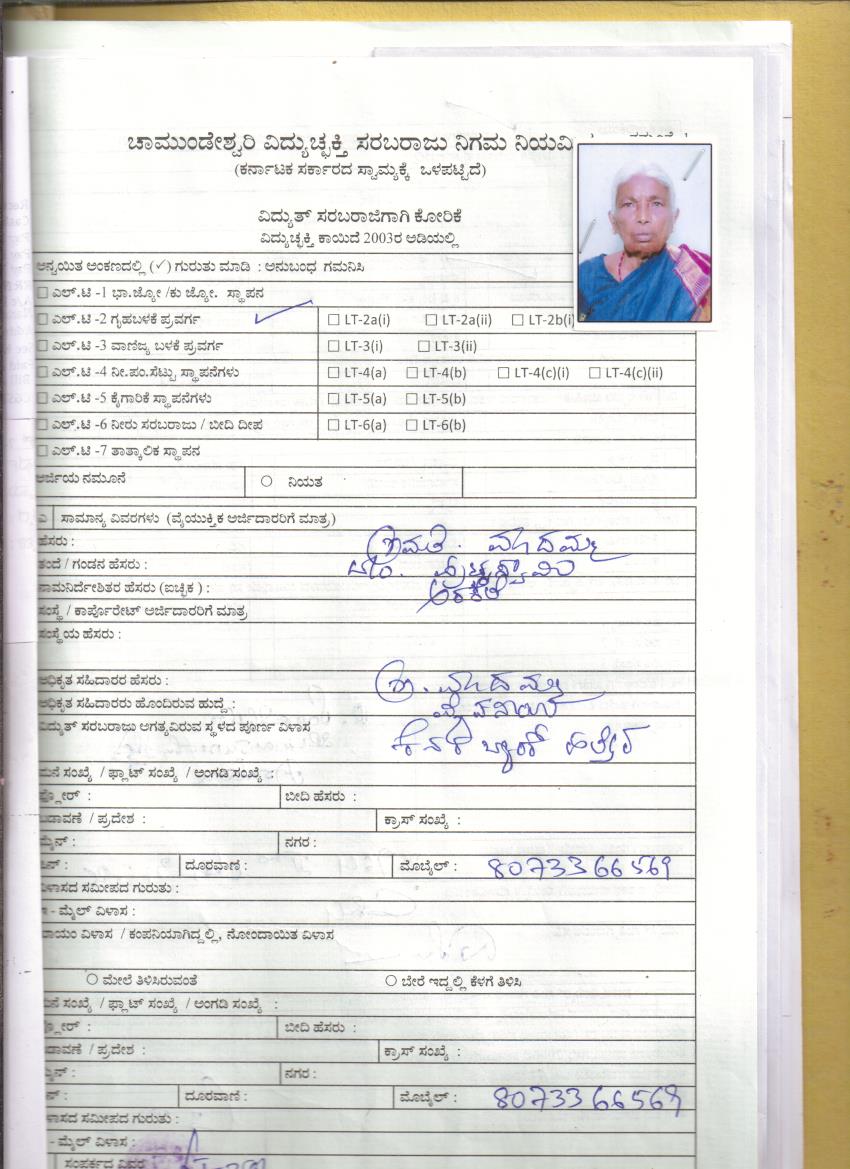 ಚಾಮುಂಡೇಶ್ವರಿ ವಿದ್ಯುಚ್ಛಕ್ತಿ ಸರಬರಾಜು ನಿಗಮ
(ಕರ್ನಾಟಕ ಸರ್ಕಾರದ ಸ್ವಾಮ್ಯಕ್ಕೆ ಒಳಪಟ್ಟಿದೆ)
ವಿದ್ಯುತ್ ಸರಬರಾಜಿಗಾಗಿ ಕೋರಿಕೆ
ವಿದ್ಯುಚ್ಛಕ್ತಿ ಕಾಯಿದೆ 2003ರ ಅಡಿಯಲ್ಲಿ
ಅನ್ವಯಿತ ಅಂಕಣದಲ್ಲಿ (✓) ಗುರುತು ಮಾಡಿ : ಅನುಬಂಧ ಗಮನಿಸಿ
☐ ಎಲ್.ಟಿ -1 ಭಾ.ಜ್ಯೋ /ಕು ಜ್ಯೋ. ಸ್ಥಾಪನ
☐ ಎಲ್.ಟಿ -2 ಗೃಹಬಳಕೆ ಪ್ರವರ್ಗ ✓ ☐ LT-2a(i) ☐ LT-2a(ii) ☐ LT-2b(i)
☐ ಎಲ್.ಟಿ -3 ವಾಣಿಜ್ಯ ಬಳಕೆ ಪ್ರವರ್ಗ ☐ LT-3(i) ☐ LT-3(ii)
☐ ಎಲ್.ಟಿ -4 ನೀ.ಪಂ.ಸೆಟ್ಟು ಸ್ಥಾಪನೆಗಳು ☐ LT-4(a) ☐ LT-4(b) ☐ LT-4(c)(i) ☐ LT-4(c)(ii)
☐ ಎಲ್.ಟಿ -5 ಕೈಗಾರಿಕೆ ಸ್ಥಾಪನೆಗಳು ☐ LT-5(a) ☐ LT-5(b)
☐ ಎಲ್.ಟಿ -6 ನೀರು ಸರಬರಾಜು / ಬೀದಿ ದೀಪ ☐ LT-6(a) ☐ LT-6(b)
☐ ಎಲ್.ಟಿ -7 ತಾತ್ಕಾಲಿಕ ಸ್ಥಾಪನ
ಅರ್ಜಿಯ ನಮೂನೆ ○ ನಿಯತ
ಎ ಸಾಮಾನ್ಯ ವಿವರಗಳು (ವೈಯುಕ್ತಿಕ ಅರ್ಜಿದಾರರಿಗೆ ಮಾತ್ರ)
ಹೆಸರು : ಶ್ರೀಮತಿ. ಮಾದಮ್ಮ
ತಂದೆ / ಗಂಡನ ಹೆಸರು :
ನಾಮನಿರ್ದೇಶಿತರ ಹೆಸರು (ಐಚ್ಛಿಕ) :
ಸಂಸ್ಥೆ / ಕಾರ್ಪೊರೇಟ್ ಅರ್ಜಿದಾರರಿಗೆ ಮಾತ್ರ
ಸಂಸ್ಥೆಯ ಹೆಸರು :
ಅಧಿಕೃತ ಸಹಿದಾರರ ಹೆಸರು : ಶ್ರೀ. ಮಾದಮ್ಮ
ಅಧಿಕೃತ ಸಹಿದಾರರು ಹೊಂದಿರುವ ಹುದ್ದೆ :
ವಿದ್ಯುತ್ ಸರಬರಾಜು ಅಗತ್ಯವಿರುವ ಸ್ಥಳದ ಪೂರ್ಣ ವಿಳಾಸ ಕೆನರ ಬ್ಯಾಂಕ್ ಹತ್ತಿರ
ಮನೆ ಸಂಖ್ಯೆ / ಫ್ಲಾಟ್ ಸಂಖ್ಯೆ / ಅಂಗಡಿ ಸಂಖ್ಯೆ :
ಫ್ಲೋರ್ : ಬೀದಿ ಹೆಸರು :
ಬಡಾವಣೆ / ಪ್ರದೇಶ : ಕ್ರಾಸ್ ಸಂಖ್ಯೆ :
ಮೈನ್ : ನಗರ :
ಪಿನ್ : ದೂರವಾಣಿ : ಮೊಬೈಲ್ : 8073366569
ವಿಳಾಸದ ಸಮೀಪದ ಗುರುತು :
ಇ - ಮೈಲ್ ವಿಳಾಸ :
ಖಾಯಂ ವಿಳಾಸ / ಕಂಪನಿಯಾಗಿದ್ದಲ್ಲಿ, ನೋಂದಾಯಿತ ವಿಳಾಸ
○ ಮೇಲೆ ತಿಳಿಸಿರುವಂತೆ ○ ಬೇರೆ ಇದ್ದಲ್ಲಿ ಕೆಳಗೆ ತಿಳಿಸಿ
ಮನೆ ಸಂಖ್ಯೆ / ಫ್ಲಾಟ್ ಸಂಖ್ಯೆ / ಅಂಗಡಿ ಸಂಖ್ಯೆ :
ಫ್ಲೋರ್ : ಬೀದಿ ಹೆಸರು :
ಬಡಾವಣೆ / ಪ್ರದೇಶ : ಕ್ರಾಸ್ ಸಂಖ್ಯೆ :
ಮೈನ್ : ನಗರ :
ಪಿನ್ : ದೂರವಾಣಿ : ಮೊಬೈಲ್ : 8073366569
ವಿಳಾಸದ ಸಮೀಪದ ಗುರುತು :
- ಮೈಲ್ ವಿಳಾಸ :
ಸಂಪರ್ಕದ ವಿವರ